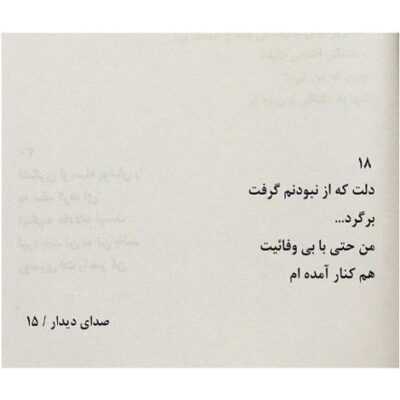 ۱۸
دلت که از نبودنم گرفت
برگرد...
من حتی با بی وفائیت
هم کنار آمده ام
صدای دیدار / ۱۵